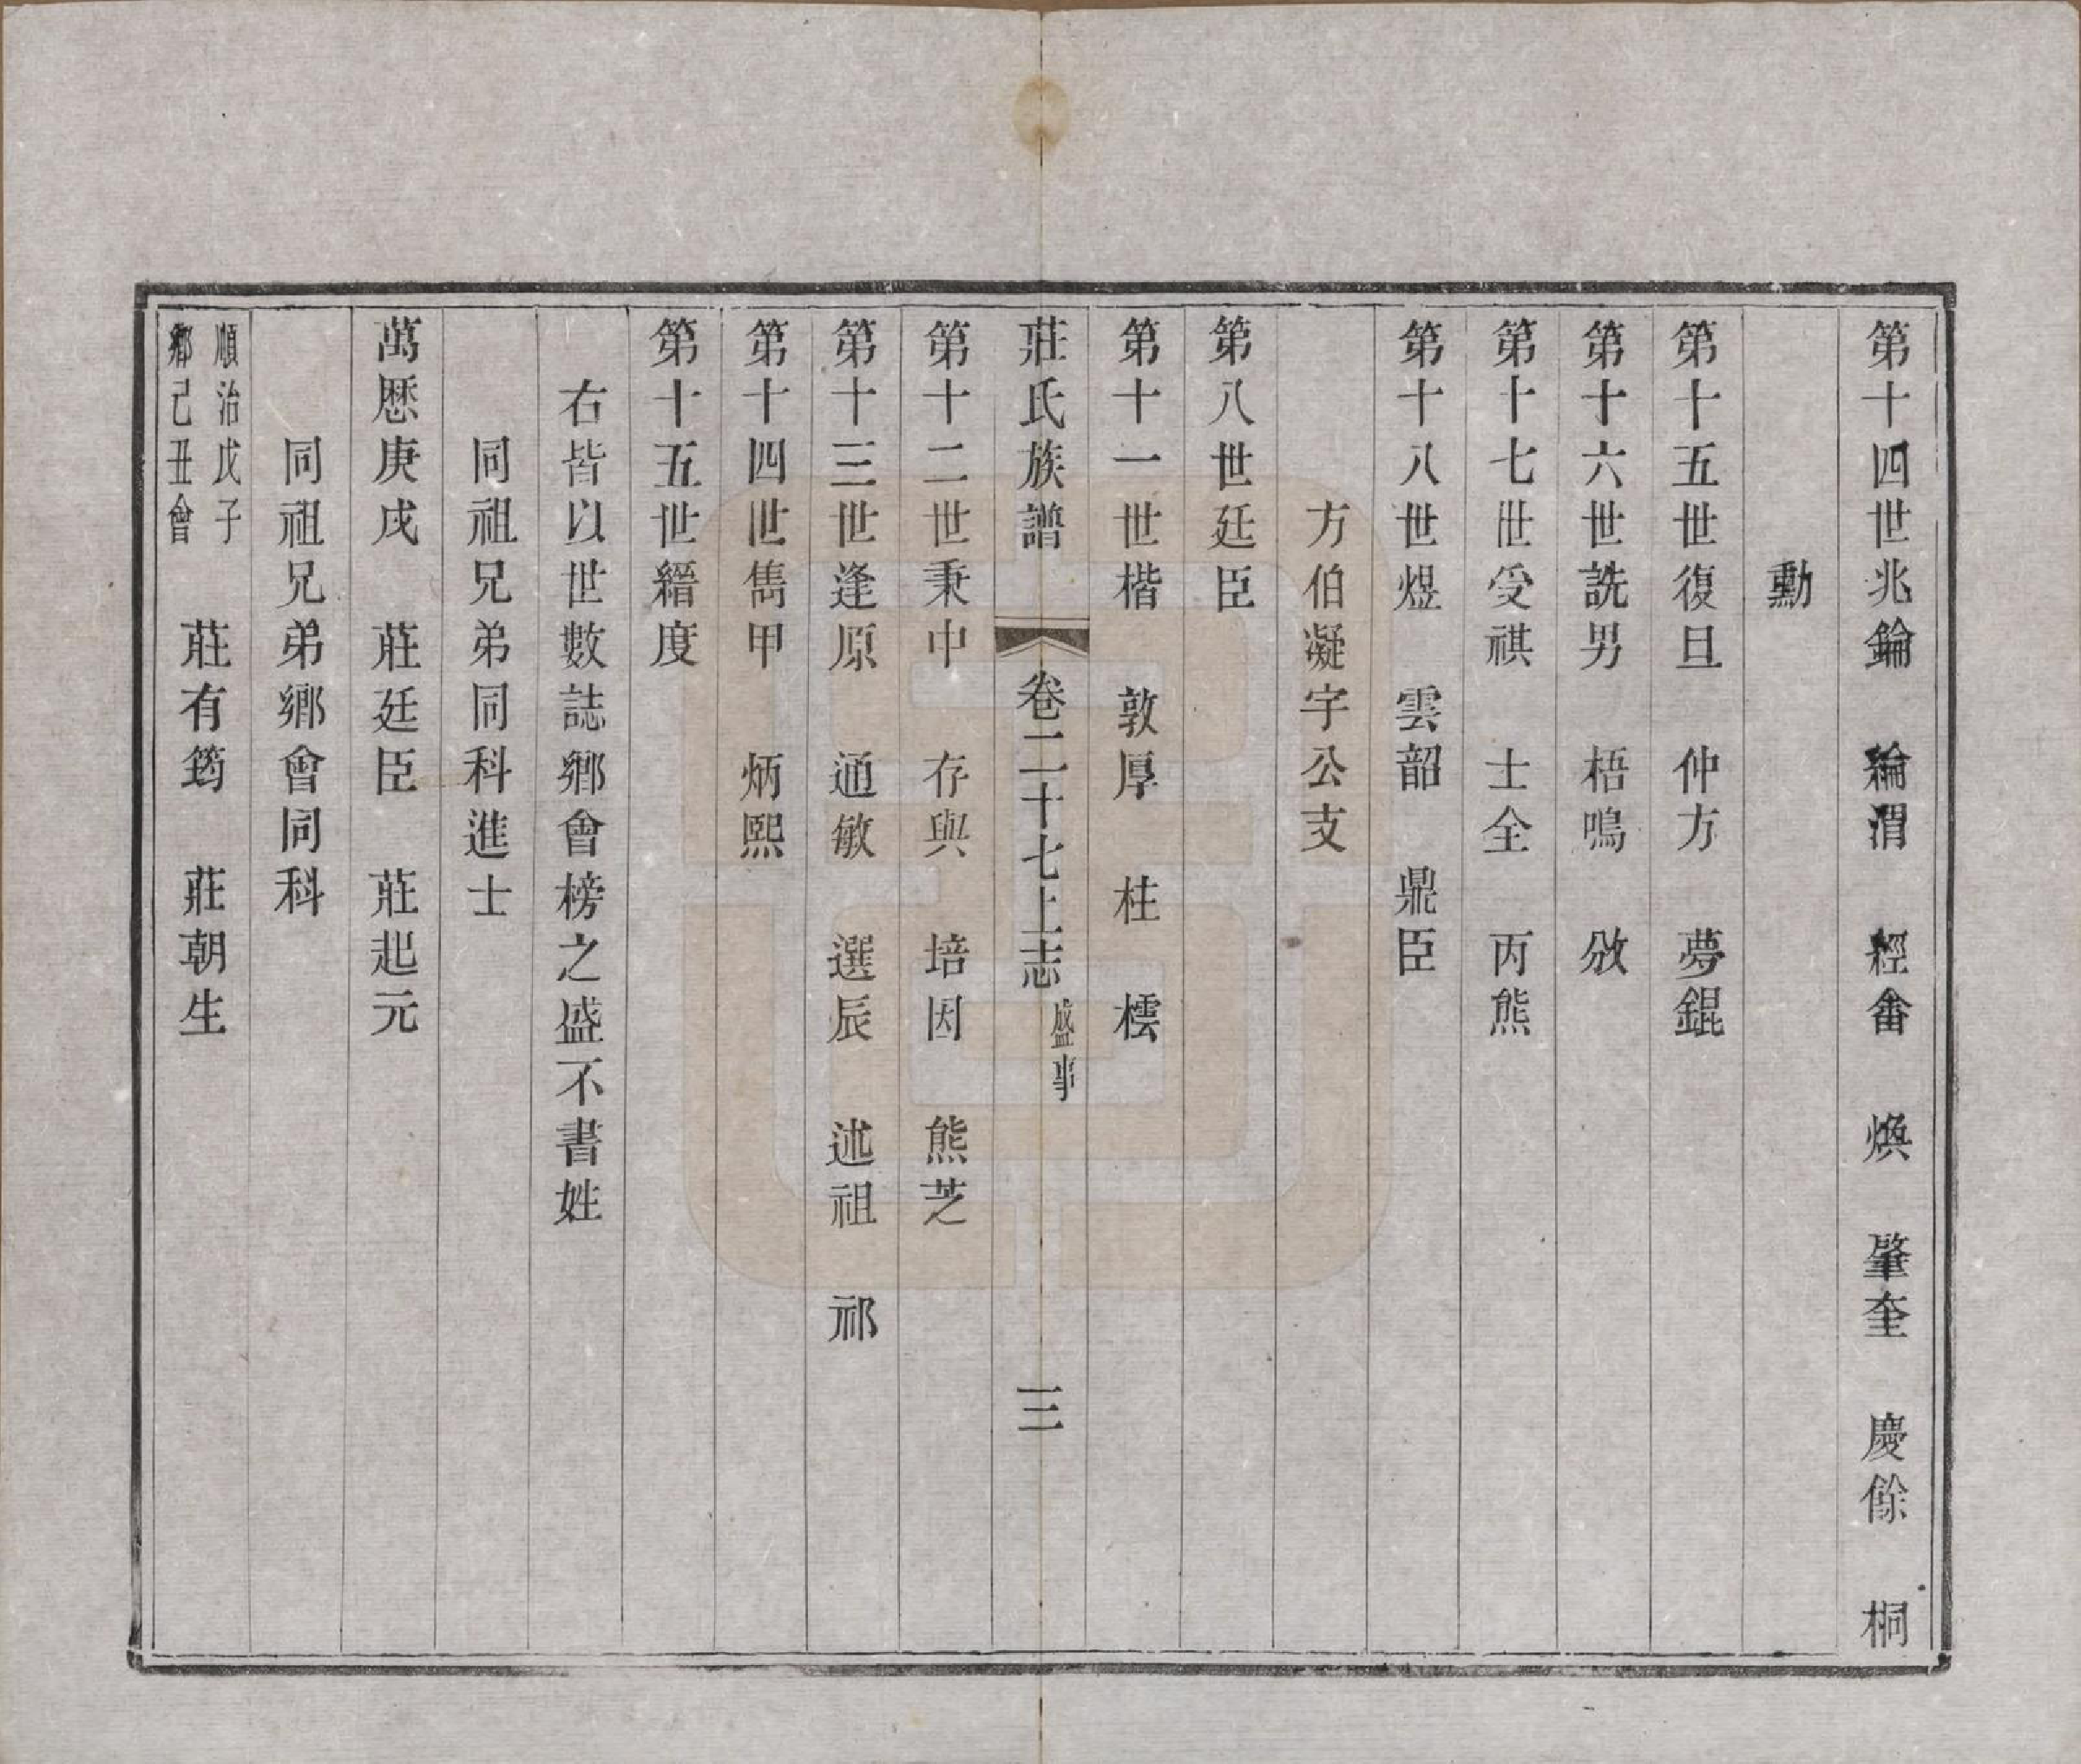 第十四世兆錀　綸渭　經畬　煥　肇奎　慶餘　桐
勳
第十五世復旦　仲方　夢錕
第十六世詵男　梧鳴　攽
第十七世受祺　士全　丙熊
第十八世煜　雲韶　鼎臣
方伯凝宇公支
第八世廷臣
第十一世楷　敦厚　柱　橒
莊氏族譜　卷二十七上志　盛事　三
第十二世秉中　存與　培因　熊芝
第十三世逢原　通敏　選辰　述祖　祁
第十四世雋甲　炳熙
第十五世縉度
右皆以世數誌鄉會榜之盛不書姓
同祖兄弟同科進士
萬厯庚戌　莊廷臣　莊起元
同祖兄弟鄉會同科
順治戊子
鄉己丑會　莊有筠　莊朝生